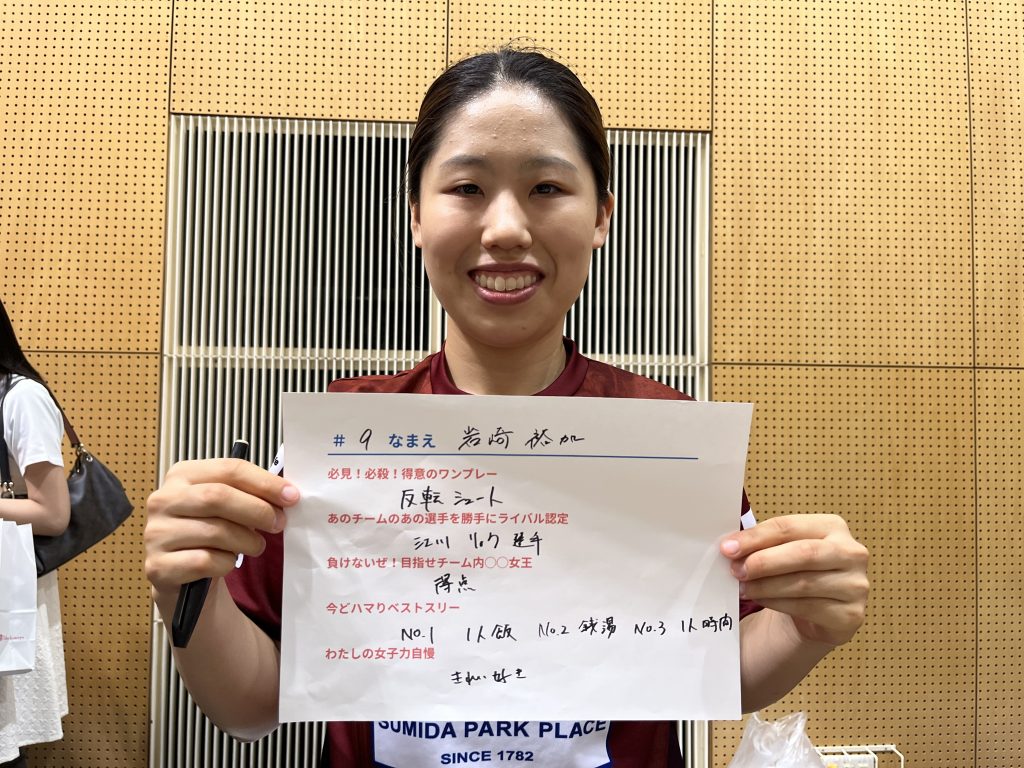 # 9 なまえ 岩崎 裕加
必見！必殺！得意のワンプレー
反転シュート
あのチームのあの選手を勝手にライバル認定
江川 リロク 選手
負けないぜ！目指せチーム内○○女王
得点
今どハマりベストスリー
No.1 1人飯 No.2 銭湯 No.3 1人時間
わたしの女子力自慢
きれい好き
SUMIDA PARK PLACE
SINCE 1782